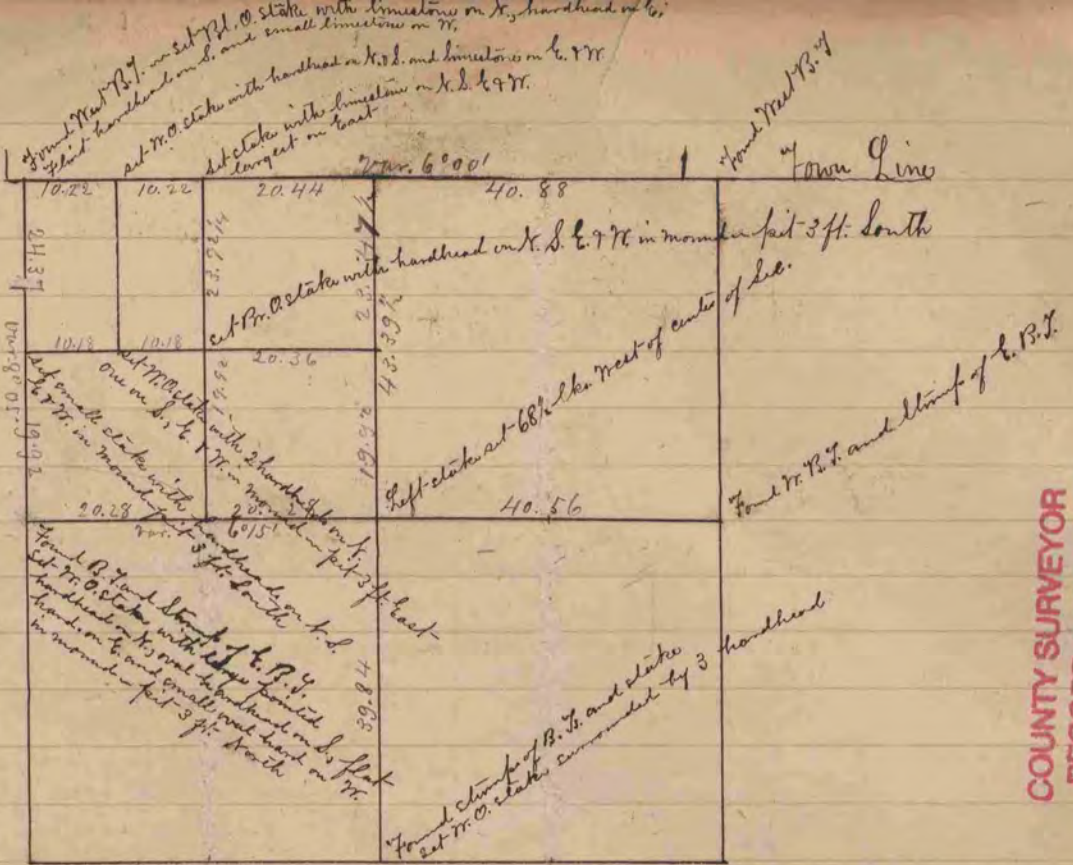 Found West B.T. set Bl. O. stake with limestone on N., hardhead on E.,
Flint hardhead on S. and small limestone on W.
set W.O. stake with hardhead on N. & S. and limestone on E. & W.
set stake with limestone on N. S. E & W.
largest on East
Found West B.T
Var. 6°00'
Town Line
10.22
10.22
20.44
40.88
24.37
23.92
23.47½
43.39½
set Br. O. stake with hardhead on N. S. E. & W. in mound pit 3 ft. South
10.18
10.18
20.36
Var. 6°05'
19.92
19.92
19.92
set W.O. stake with 2 hardheads on N.
one on S., E. & W. in mound pit 3 ft. East
set small stake with hardheads on N. S.
E & W. in mound pit 3 ft. South
Left stake set 68½ lks West of center of Sec.
Found W. B.T. and Stump of E. B.T.
20.28
20.2
40.56
var. 6°15'
Found B.T. and Stump of E. B.T.
Set W.O. stake with large pointed
hardhead on N., oval hardhead on S., flat
hard. on E. and small oval hard on W.
in mound pit 3 ft. North
39.84
Found stump of B.Ts. and stake
set W.O. stake surrounded by 3 hardhead
COUNTY SURVEYOR